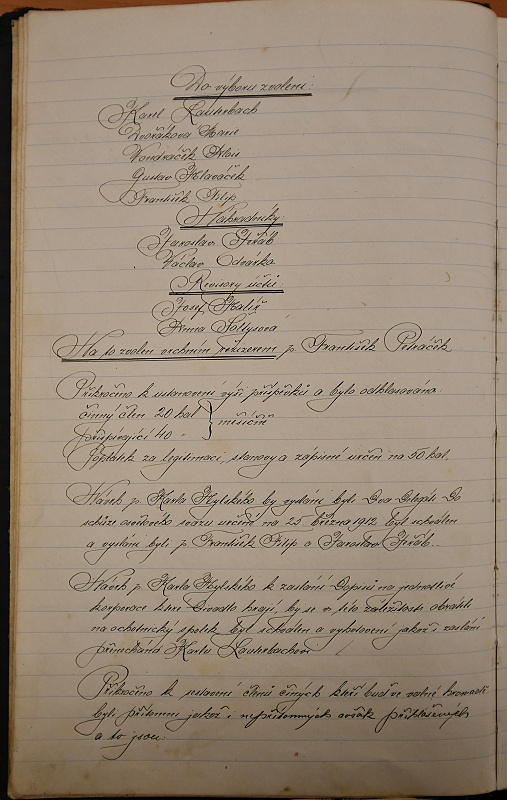 Do výboru zvoleni:
Karel Lauterbach
Dvořáková Marie
Vondráček Alois
Gustav Hlaváček
František Filip
Náhradníky:
Jaroslav Jeřáb
Václav Odvarka
Revisory účtů:
Josef Malíř
Anna Soltysová
Na to zvolen vrchním režizerem p. František Petráček
Přikročeno k ustanovení výši příspěvků a bylo odhlasováno:
činný člen 20 hal
měsíčně
přispívající 40 "
Poplatek za legitimaci, stanovy a zápisné určen na 50 hal.
Návrh p. Karla Hylského by vysláni byli dva delegáti do
schůze osvětového svazu určené na 25 března 1912 byl schválen
a vysláni byli p. František Filip a Jaroslav Jeřáb.
Návrh p. Karla Hylského k zaslání dopisů na jednotlivé
korporace které divadlo hrají, by se v této záležitosti obrátili
na ochotnický spolek byl schválen a vyhotovení jakož i zaslání
přenecháno Karlu Lauterbachovi
Přikročeno k sestavení členů činých kteří buď ve valné hromadě
byli přítomni jakož i nepřítomných avšak přihlášených
a to jsou: